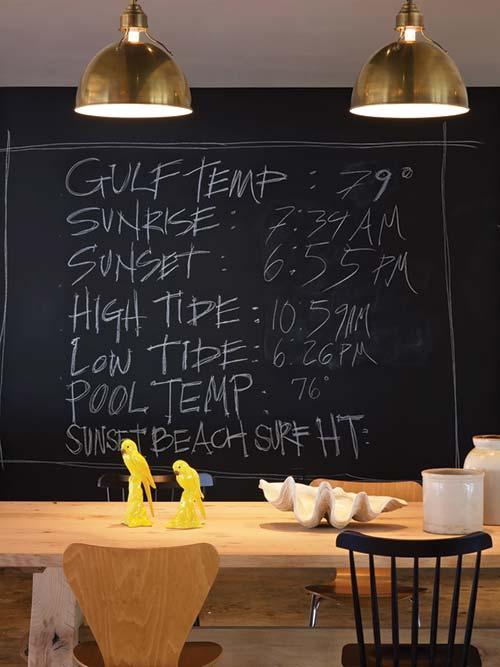 GULF TEMP : 79°
SUNRISE : 7:34 AM
SUNSET : 6:55 PM
HIGH TIDE : 10:59AM
LOW TIDE : 6:26PM
POOL TEMP : 76°
SUNSET BEACH SURF HT: